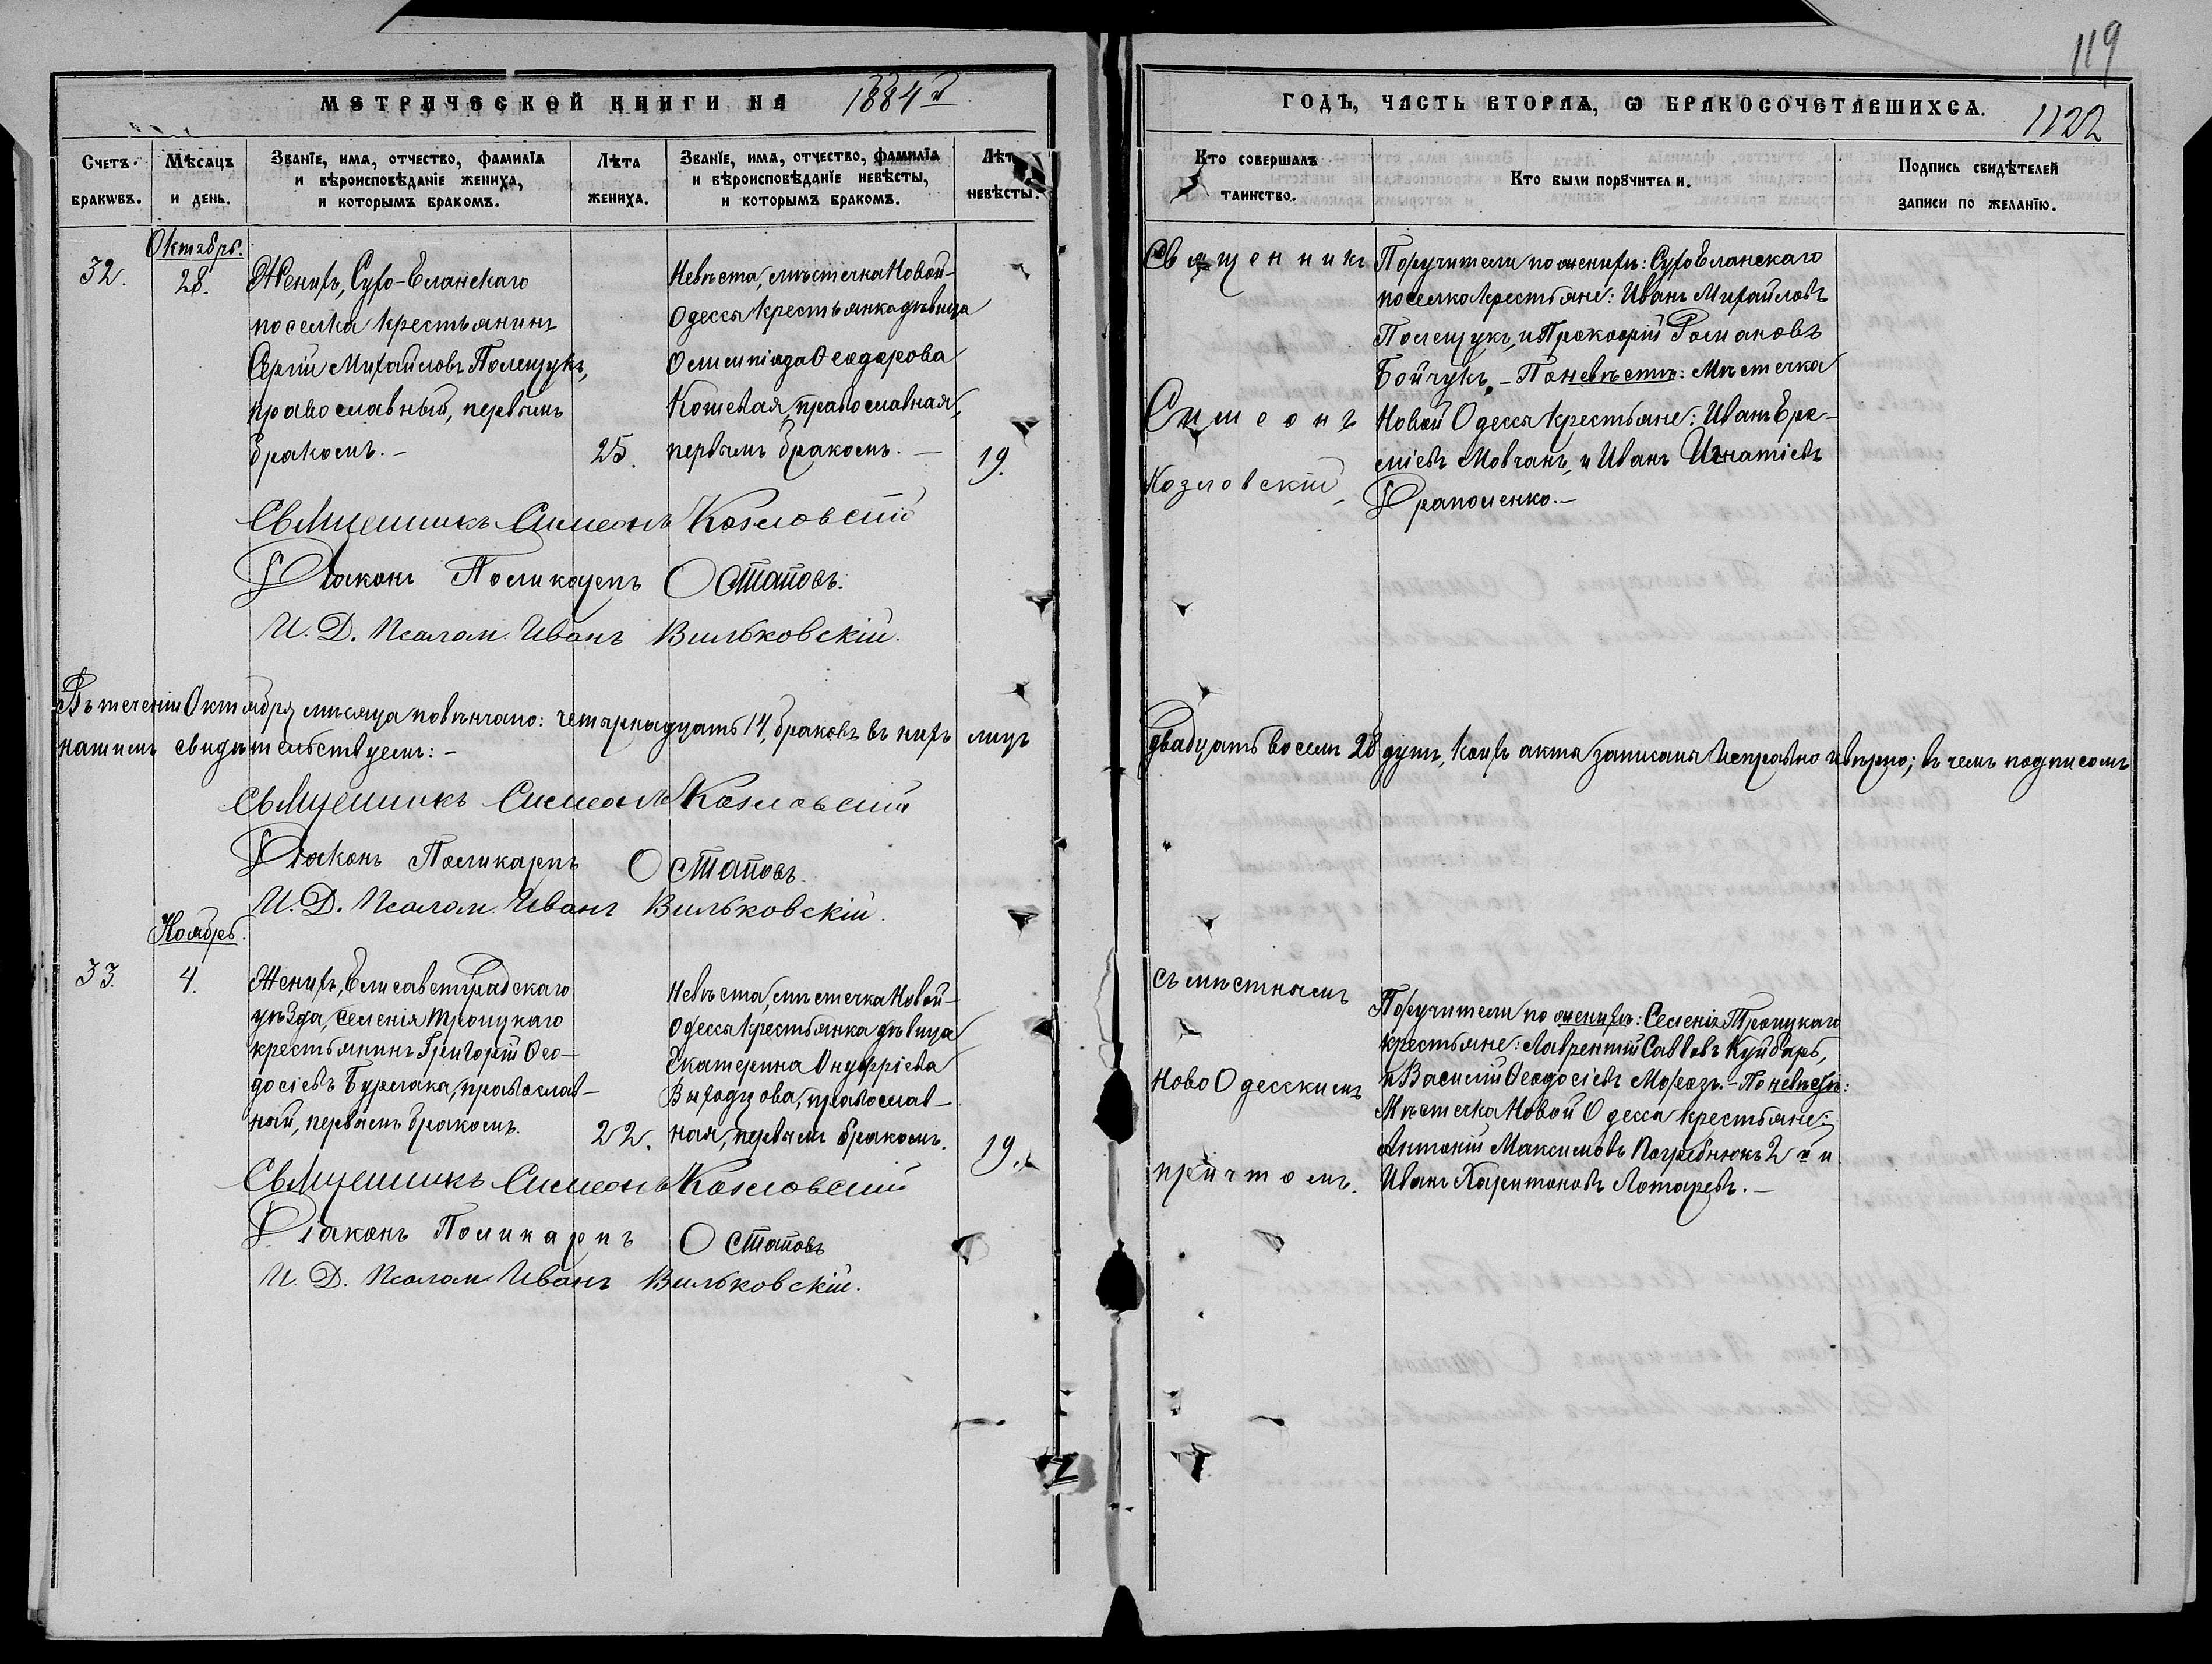 119
МЕТРИЧЕСКОЙ КНИГИ НА 1884й
ГОДЪ, ЧАСТЬ ВТОРАЯ, Ѡ БРАКОСОЧЕТАВШИХСЯ.
1122
Счетъ браковъ.
Мѣсяцъ и день.
Званіе, имя, отчество, фамилія
и вѣроисповѣданіе жениха,
и которымъ бракомъ.
Лѣта жениха.
Званіе, имя, отчество, фамилія
и вѣроисповѣданіе невѣсты,
и которымъ бракомъ.
Лѣта невѣсты.
Кто совершалъ таинство.
Кто были поручители.
Подпись свидѣтелей
записи по желанію.
Октябрь.
32.
28.
Женихъ, Сухо-Еланскаго
поселка крестьянинъ
Сергій Михайловъ Полещукъ,
православный, первымъ
бракомъ.-
25.
Невѣста, мѣстечка Новой-
Одессы крестьянка дѣвица
Олимпіяда Ѳеодорова
Кошевая, православная,
первымъ бракомъ.-
19.
Священникъ
Симеонъ
Козловскій
Поручители по женихѣ: Сухо Еланскаго
поселка крестьяне: Иванъ Михайловъ
Полещукъ, и Прокофій Романовъ
Бойчукъ.- По невѣстѣ: Мѣстечка
Новой Одессы крестьяне: Иванъ Ере-
міевъ Мовчанъ, и Иванъ Игнатіевъ
Драполенко.-
Священникъ Симеонъ Козловскій
Діаконъ Поликарпъ Остаповъ.
И. Д. Псалом. Иванъ Вильковскій.
Въ теченіи Октября мѣсяца повѣнчано: четырнадцать 14, браковъ въ нихъ лицъ двадцать восемь 28 душъ, коихъ акты записаны исправно и вѣрно; въ чемъ подписомъ
нашимъ свидѣтельствуемъ:-
Священникъ Симеонъ Козловскій
Діаконъ Поликарпъ Остаповъ
И. Д. Псалом. Иванъ Вильковскій.
Ноябрь.
33.
4.
Женихъ, Елисаветградскаго
уѣзда, селенія Троицкаго
крестьянинъ Григорій Ѳео-
досіевъ Бурлака, православ-
ный, первымъ бракомъ.
22.
Невѣста, мѣстечка Новой-
Одессы крестьянка дѣвица
Екатерина Онуфріева
Выходцова, православ-
ная, первымъ бракомъ.
19.
Съ мѣстнымъ
Ново Одесскимъ
причтомъ.
Поручители по женихѣ: Селенія Троицкаго
крестьяне: Лаврентій Савовъ Куйбарь,
и Василій Ѳеодосіевъ Морозъ.- По невѣстѣ:
Мѣстечка Новой Одессы крестьяне:
Антоній Максимовъ Погребнюкъ 2й и
Иванъ Харитоновъ Лотаревъ.-
Священникъ Симеонъ Козловскій
Діаконъ Поликарпъ Остаповъ
И. Д. Псалом. Иванъ Вильковскій.